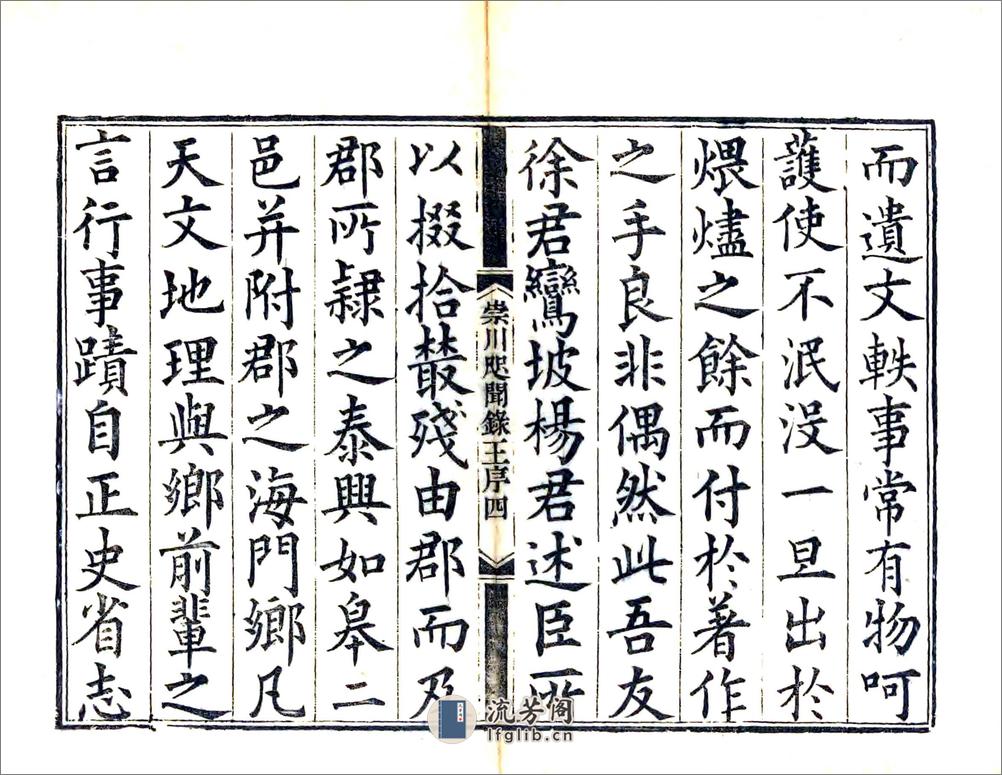 而遺文軼事常有物呵
護使不泯没一旦出於
煨燼之餘而付於著作
之手良非偶然此吾友
徐君鸞坡楊君述臣所
崇川咫聞錄王序四
以掇拾叢殘由郡而及
郡所隷之泰興如皋二
邑并附郡之海門鄉凡
天文地理與鄉前輩之
言行事蹟自正史省志
流芳阁
lfglib.cn